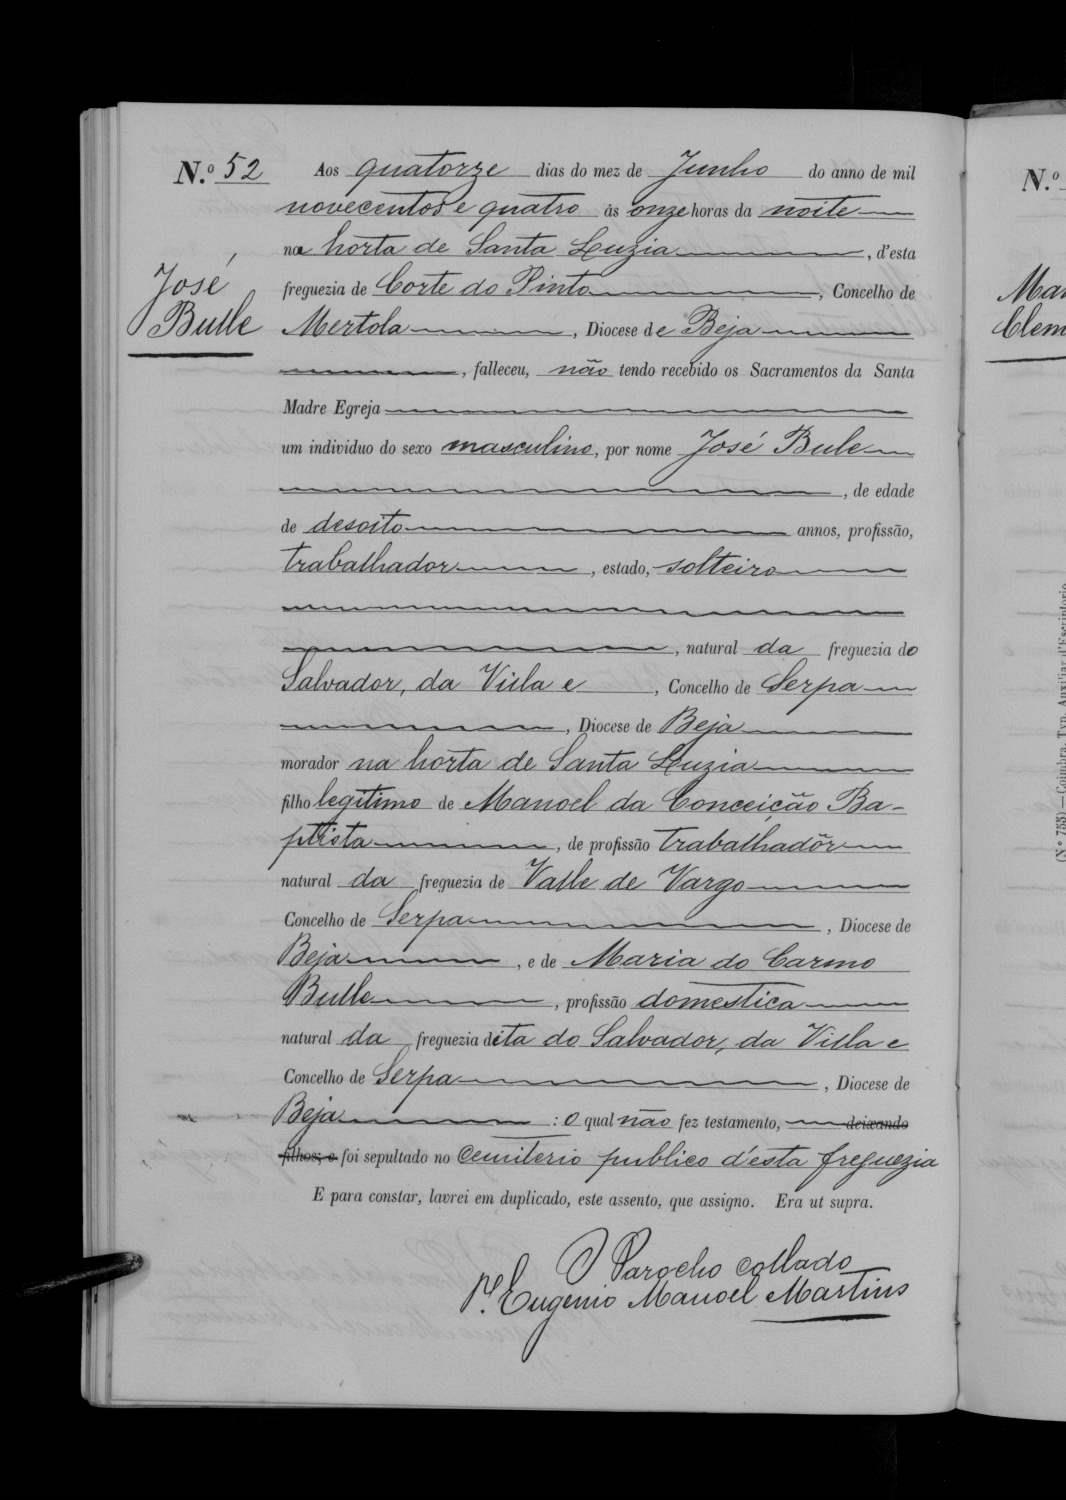 N.º 52
Aos quatorze dias do mez de Junho do anno de mil
novecentos e quatro ás onze horas da noite
na horta de Santa Luzia, d'esta
José
freguezia de Corte do Pinto, Concelho de
Bulle
Mertola, Diocese de Beja
, falleceu, não tendo recebido os Sacramentos da Santa
Madre Egreja
um individuo do sexo masculino, por nome José Bule
, de edade
de desoito annos, profissão,
trabalhador, estado, solteiro
, natural da freguezia do
Salvador, da Villa e, Concelho de Serpa
, Diocese de Beja
morador na horta de Santa Luzia
filho legitimo de Manoel da Conceição Ba-
ptista, de profissão trabalhador
natural da freguezia de Valle de Vargo
Concelho de Serpa, Diocese de
Beja, e de Maria do Carmo
Bulle, profissão domestica
natural da freguezia dita do Salvador, da Villa e
Concelho de Serpa, Diocese de
Beja: O qual não fez testamento, deixando
filhos; e foi sepultado no cemiterio publico d'esta freguezia
E para constar, lavrei em duplicado, este assento, que assigno. Era ut supra.
O Parocho collado
P.e Eugenio Manoel Martins
N.º
Mar
Clem
(N.º 753)—Coimbra, Typ. Auxiliar d'Escriptorio